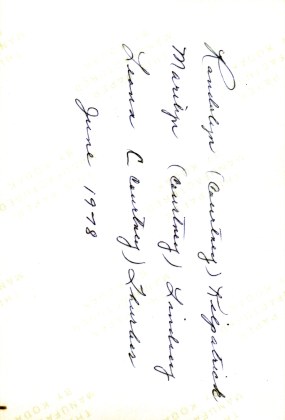 Randolyn (Courtney) Kilpatrick
Marilyn (Courtney) Lindsey
Leona C (Courtney) Thurber
June 1978